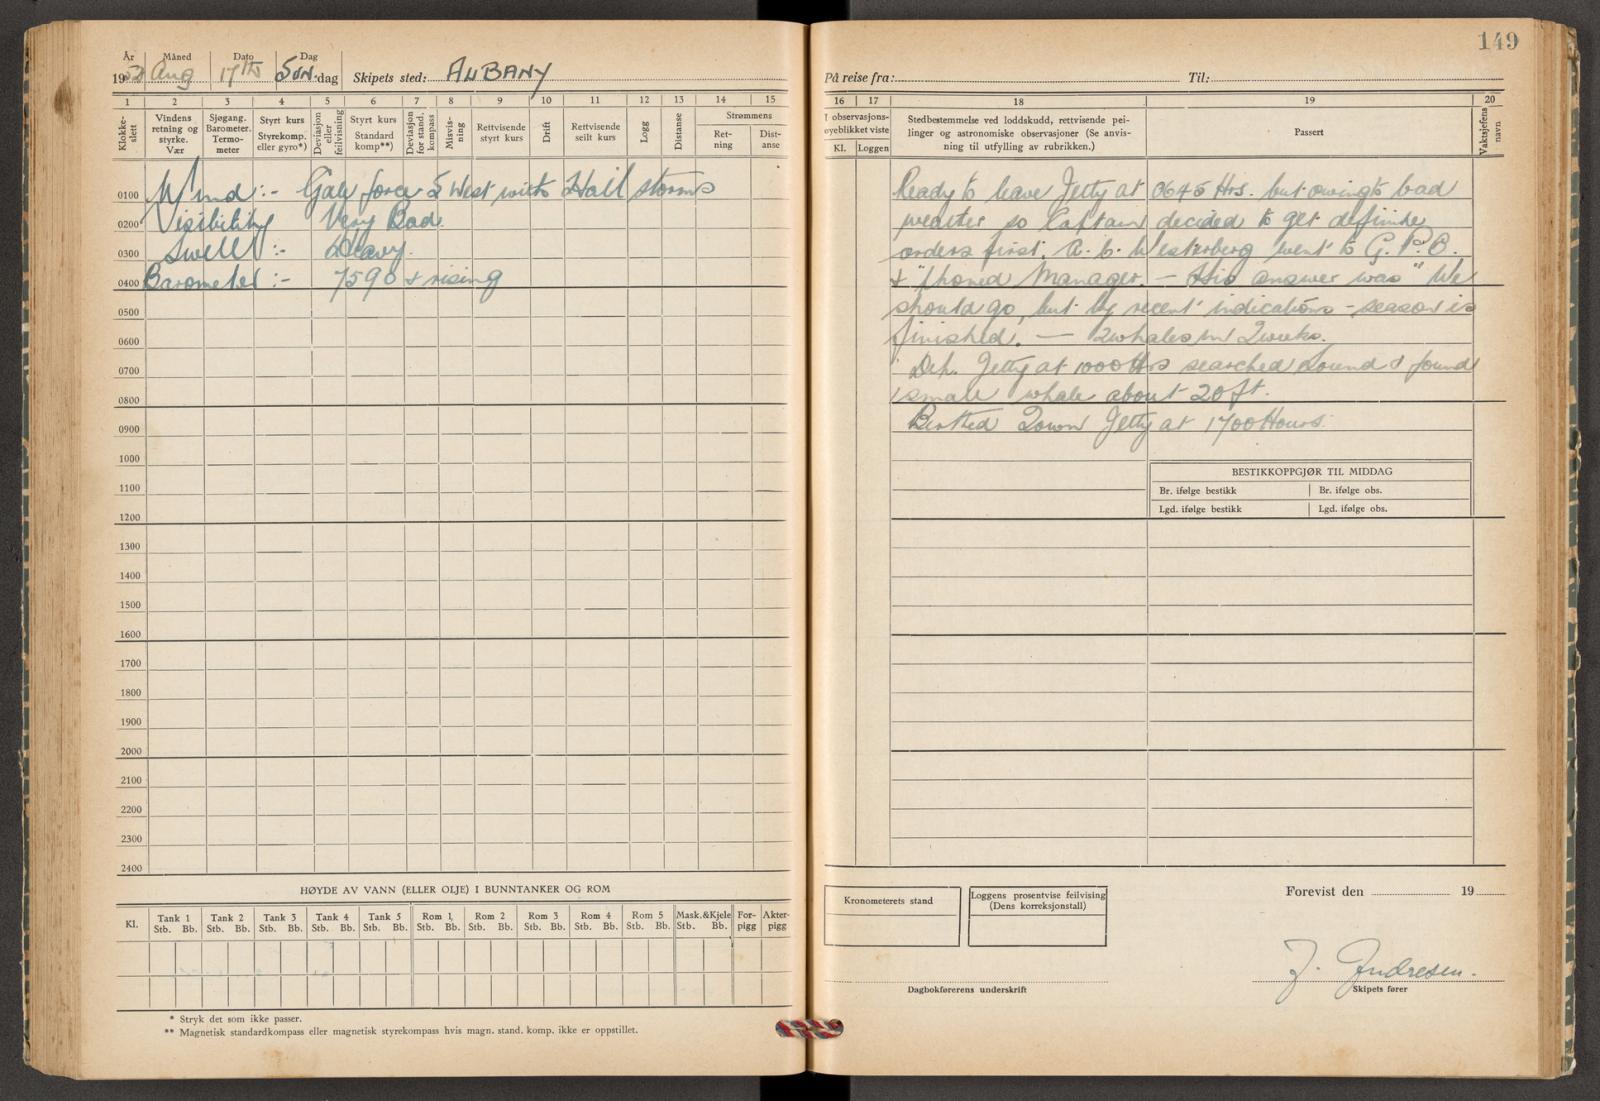 149
År Måned Dato Dag
1952 Aug 17th SUN.dag Skipets sted: ALBANY
På reise fra: Til:
1 2 3 4 5 6 7 8 9 10 11 12 13 14 15
Klokke-slett
Vindens retning og styrke. Vær
Sjøgang. Barometer. Termo-meter
Styrt kurs Styrekomp. eller gyro*)
Deviasjon eller feilvisning
Styrt kurs Standard komp**)
Deviasjon for stand. kompass
Misvis-ning
Rettvisende styrt kurs
Drift
Rettvisende seilt kurs
Logg
Distanse
Strømmens
Ret-ning
Dist-anse
0100 Wind :- Gale force 5 West with Hail storms
0200 Visibility Very Bad.
0300 Swell :- Heavy.
0400 Barometer :- 7590 & rising
0500
0600
0700
0800
0900
1000
1100
1200
1300
1400
1500
1600
1700
1800
1900
2000
2100
2200
2300
2400
HØYDE AV VANN (ELLER OLJE) I BUNNTANKER OG ROM
Kl. Tank 1 Tank 2 Tank 3 Tank 4 Tank 5 Rom 1 Rom 2 Rom 3 Rom 4 Rom 5 Mask.&Kjele For-pigg Akter-pigg
Stb. Bb. Stb. Bb. Stb. Bb. Stb. Bb. Stb. Bb. Stb. Bb. Stb. Bb. Stb. Bb. Stb. Bb. Stb. Bb. Stb. Bb.
* Stryk det som ikke passer.
** Magnetisk standardkompass eller magnetisk styrekompass hvis magn. stand. komp. ikke er oppstillet.
16 17 18 19 20
I observasjons-
øyeblikket viste
Kl. Loggen
Stedbestemmelse ved loddskudd, rettvisende pei-
linger og astronomiske observasjoner (Se anvis-
ning til utfylling av rubrikken.)
Passert
Vaktsjefens navn
Ready to leave Jetty at 0645 Hrs. but owing to bad
weather so Captain decided to get definite
orders first. A. E. Westerberg went to G. P. O.
& "phoned Manager. — His answer was " We
should go, but by recent indications - season is
finished. — 2 whales in 2 weeks.
Dep. Jetty at 1000 Hrs searched Sound & found
small whale about 20 ft.
Berthed Town Jetty at 1700 Hours.
BESTIKKOPPGJØR TIL MIDDAG
Br. ifølge bestikk Br. ifølge obs.
Lgd. ifølge bestikk Lgd. ifølge obs.
Kronometerets stand
Loggens prosentvise feilvising
(Dens korreksjonstall)
Forevist den 19
Dagbokførerens underskrift
J. Andresen.
Skipets fører